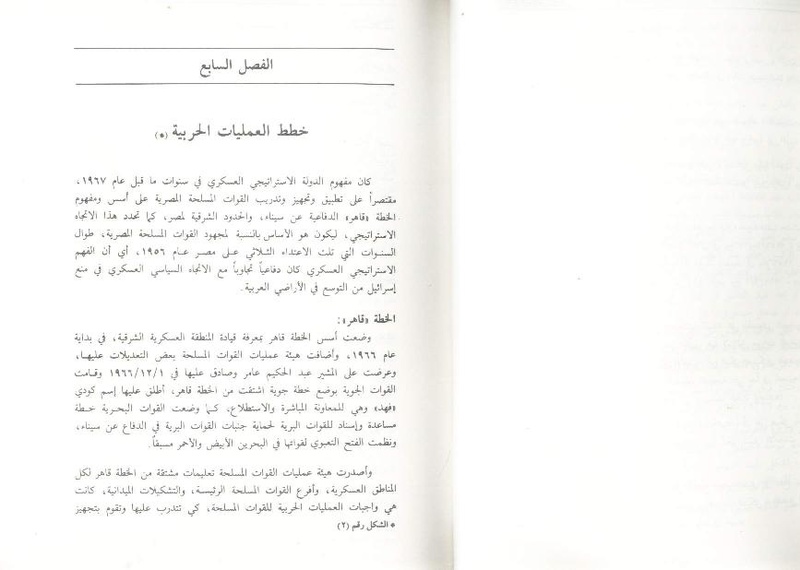 الفصل السابع
خطط العمليات الحربية (*)
كان مفهوم الدولة الاستراتيجي العسكري في سنوات ما قبل عام ١٩٦٧،
مقتصراً على تطبيق وتجهيز وتدريب القوات المسلحة المصرية على أسس ومفهوم
الخطة «قاهر» الدفاعية عن سيناء، والحدود الشرقية لمصر، كما تحدد هذا الاتجاه
الاستراتيجي، ليكون هو الأساس بالنسبة لمجهود القوات المسلحة المصرية، طوال
السنوات التي تلت الاعتداء الثلاثي على مصر عام ١٩٥٦، أي أن الفهم
الاستراتيجي العسكري كان دفاعياً تجاوباً مع الاتجاه السياسي العسكري في منع
إسرائيل من التوسع في الأراضي العربية.
الخطة «قاهر»:
وضعت أسس الخطة قاهر بمعرفة قيادة المنطقة العسكرية الشرقية، في بداية
عام ١٩٦٦، وأضافت هيئة عمليات القوات المسلحة بعض التعديلات عليها،
وعرضت على المشير عبد الحكيم عامر وصادق عليها في ١٩٦٦/١٢/١ وقامت
القوات الجوية بوضع خطة جوية اشتقت من الخطة قاهر، أطلق عليها إسم كودي
«فهد» وهي للمعاونة المباشرة والاستطلاع، كما وضعت القوات البحرية خطة
مساعدة وإسناد للقوات البرية لحماية جنبات القوات البرية في الدفاع عن سيناء،
ونظمت الفتح التعبوي لقواتها في البحرين الأبيض والأحمر مسبقاً.
وأصدرت هيئة عمليات القوات المسلحة تعليمات مشتقة من الخطة قاهر لكل
المناطق العسكرية، وأفرع القوات المسلحة الرئيسة، والتشكيلات الميدانية، كانت
هي واجبات العمليات الحربية للقوات المسلحة، كي تتدرب عليها وتقوم بتجهيز
* الشكل رقم (٢)